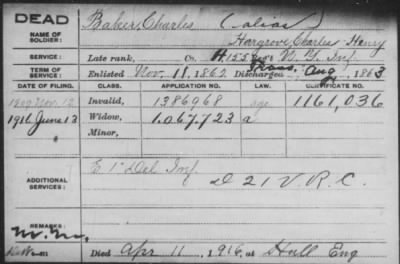 DEAD
Baker, Charles (alias)
NAME OF SOLDIER:
Hargrove, Charles Henry
SERVICE:
Late rank, Co. H. 155 Reg't N. Y. Inf.
TERM OF SERVICE:
Enlisted Nov. 18, 1862 Discharged Trans. Aug , 1863
DATE OF FILING. CLASS. APPLICATION NO. LAW. CERTIFICATE NO.
1909 Nov. 12 Invalid, 1386968 age 1161,036
1916 June 13 Widow, 1.067.723 a
Minor,
E 1" Del Inf.
ADDITIONAL SERVICES:
D 21 V. R. C.
REMARKS:
Died Apr 11, 1916, at Hull Eng